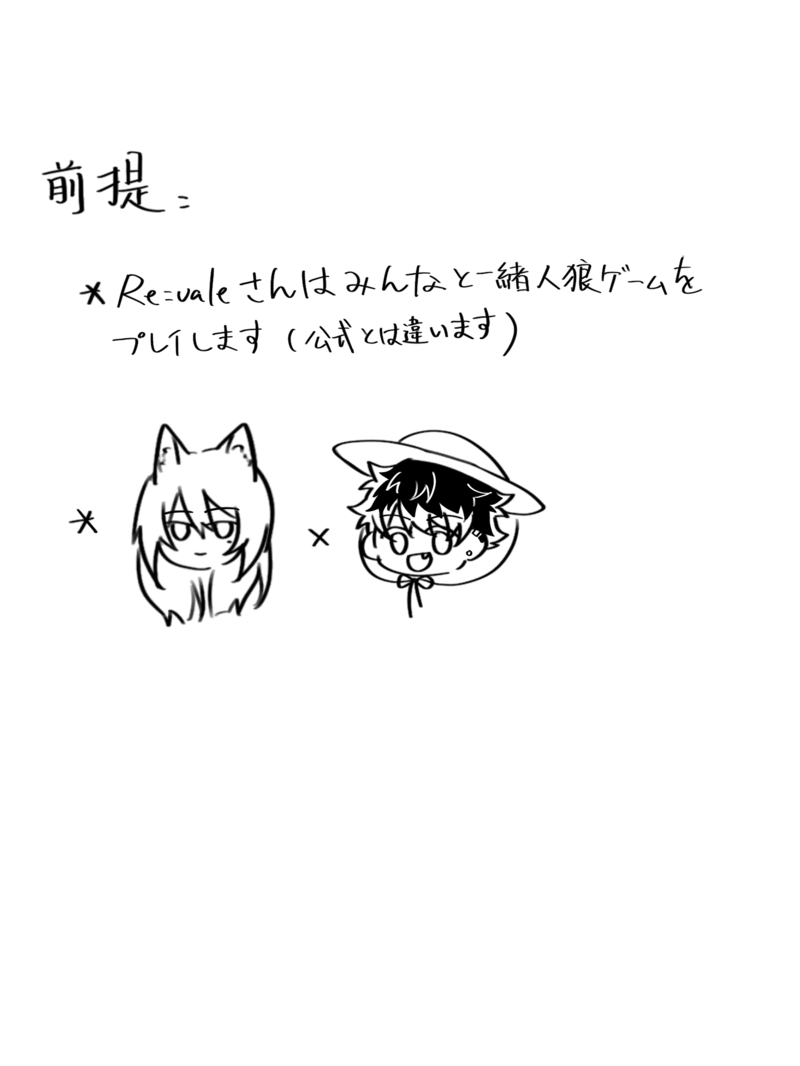 前提：
* Re:valeさんはみんなと一緒人狼ゲームを
プレイします（公式とは違います）
* ×